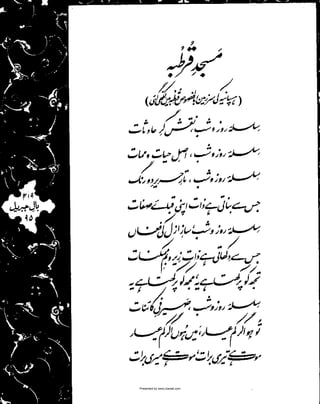 مسجدِ قُرطبہ
(ہسپانیہ کی سرزمین، بالخصوص قرطبہ میں لکھی گئی)
سلسلۂ روز و شب، نقش گرِ حادثات
سلسلۂ روز و شب، اصلِ حیات و ممات
سلسلۂ روز و شب، تارِ حریرِ دو رنگ
جس سے بناتی ہے ذات اپنی قبائے صفات
سلسلۂ روز و شب، سازِ ازل کی فغاں
جس سے دکھاتی ہے ذات زیر و بمِ ممکنات
تجھ کو پرکھتا ہے یہ، مجھ کو پرکھتا ہے یہ
سلسلۂ روز و شب، صیرفیِ کائنات
تو ہو اگر کم عیار، میں ہوں اگر کم عیار
موت ہے تیری برات، موت ہے میری برات
۴۱۹
بالِ جبریل
۹۵
Presented by www.ziaraat.com